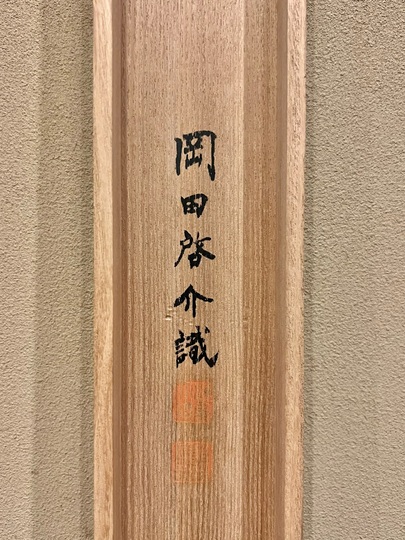 岡田啓介識